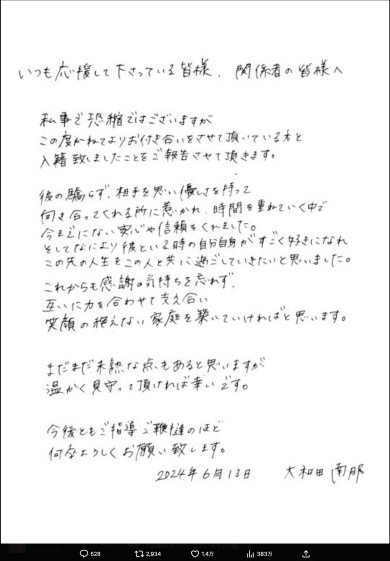 いつも応援して下さっている皆様、関係者の皆様へ
私事で恐縮ではございますが
この度かねてよりお付き合いをさせて頂いている方と
入籍致しましたことをご報告させて頂きます。
彼の驕らず、相手を思い優しさを持って
向き合ってくれる所に惹かれ、時間を重ねていく中で
今までにない安心や信頼をくれました。
そしてなにより彼といる時の自分自身がすごく好きになれ
この先の人生をこの人と共に過ごしていきたいと思いました。
これからも感謝の気持ちを忘れず、
互いに力を合わせて支え合い
笑顔の絶えない家庭を築いていければと思います。
まだまだ未熟な点もあると思いますが
温かく見守って頂ければ幸いです。
今後ともご指導ご鞭撻のほど
何卒よろしくお願い致します。
2024年6月13日 大和田南那
528 2,934 1.4万 383万